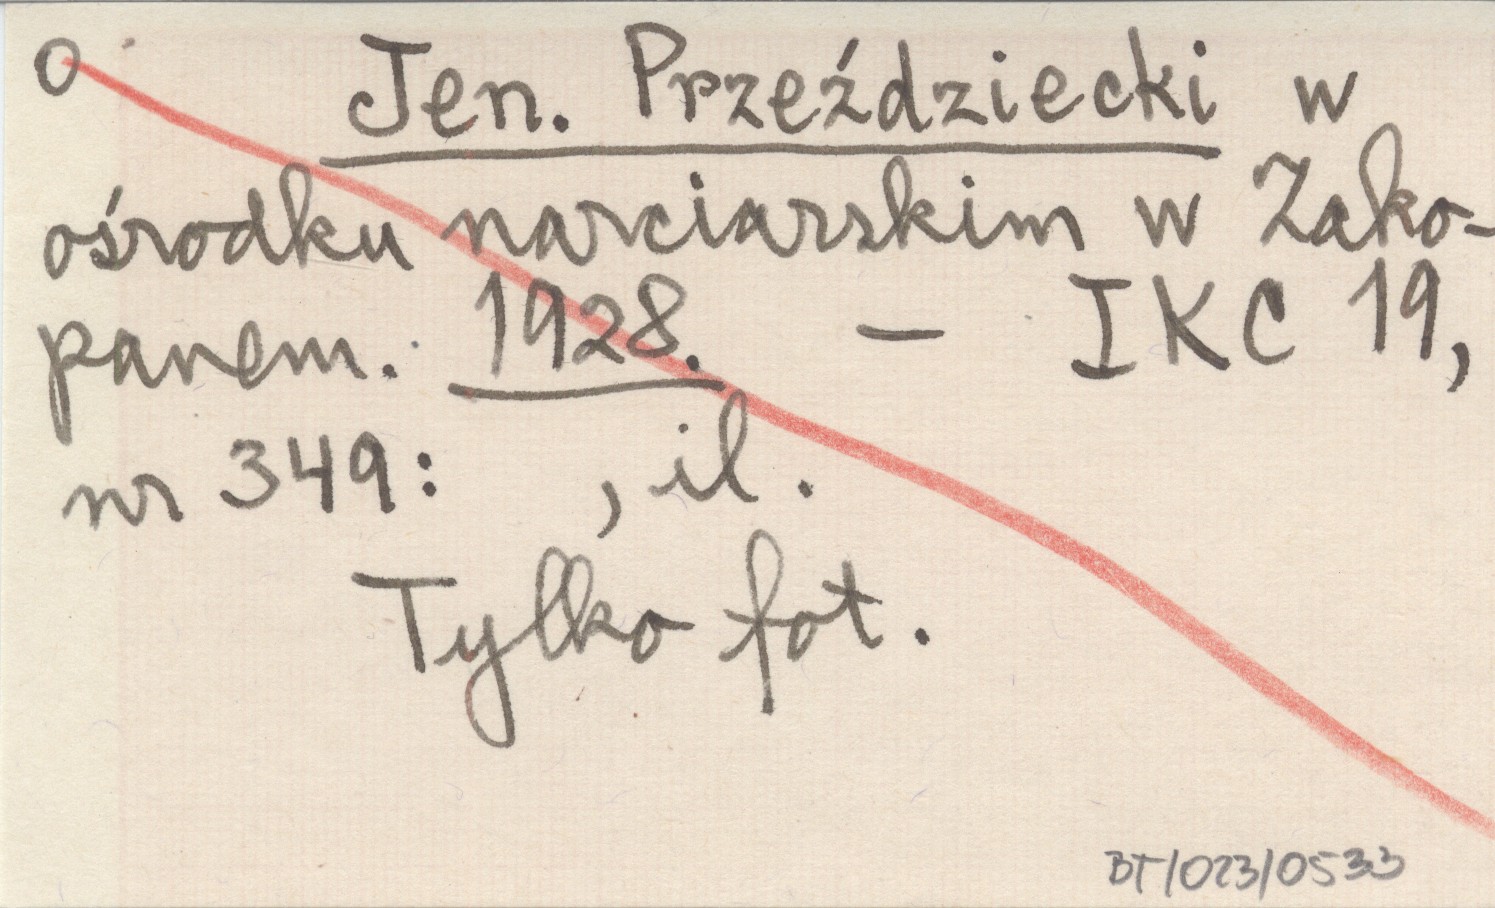 O Jen. Przeździecki w
ośrodku narciarskim w Zako-
panem. 1928. – IKC 19,
nr 349: , il.
Tylko fot.
BT/023/0533